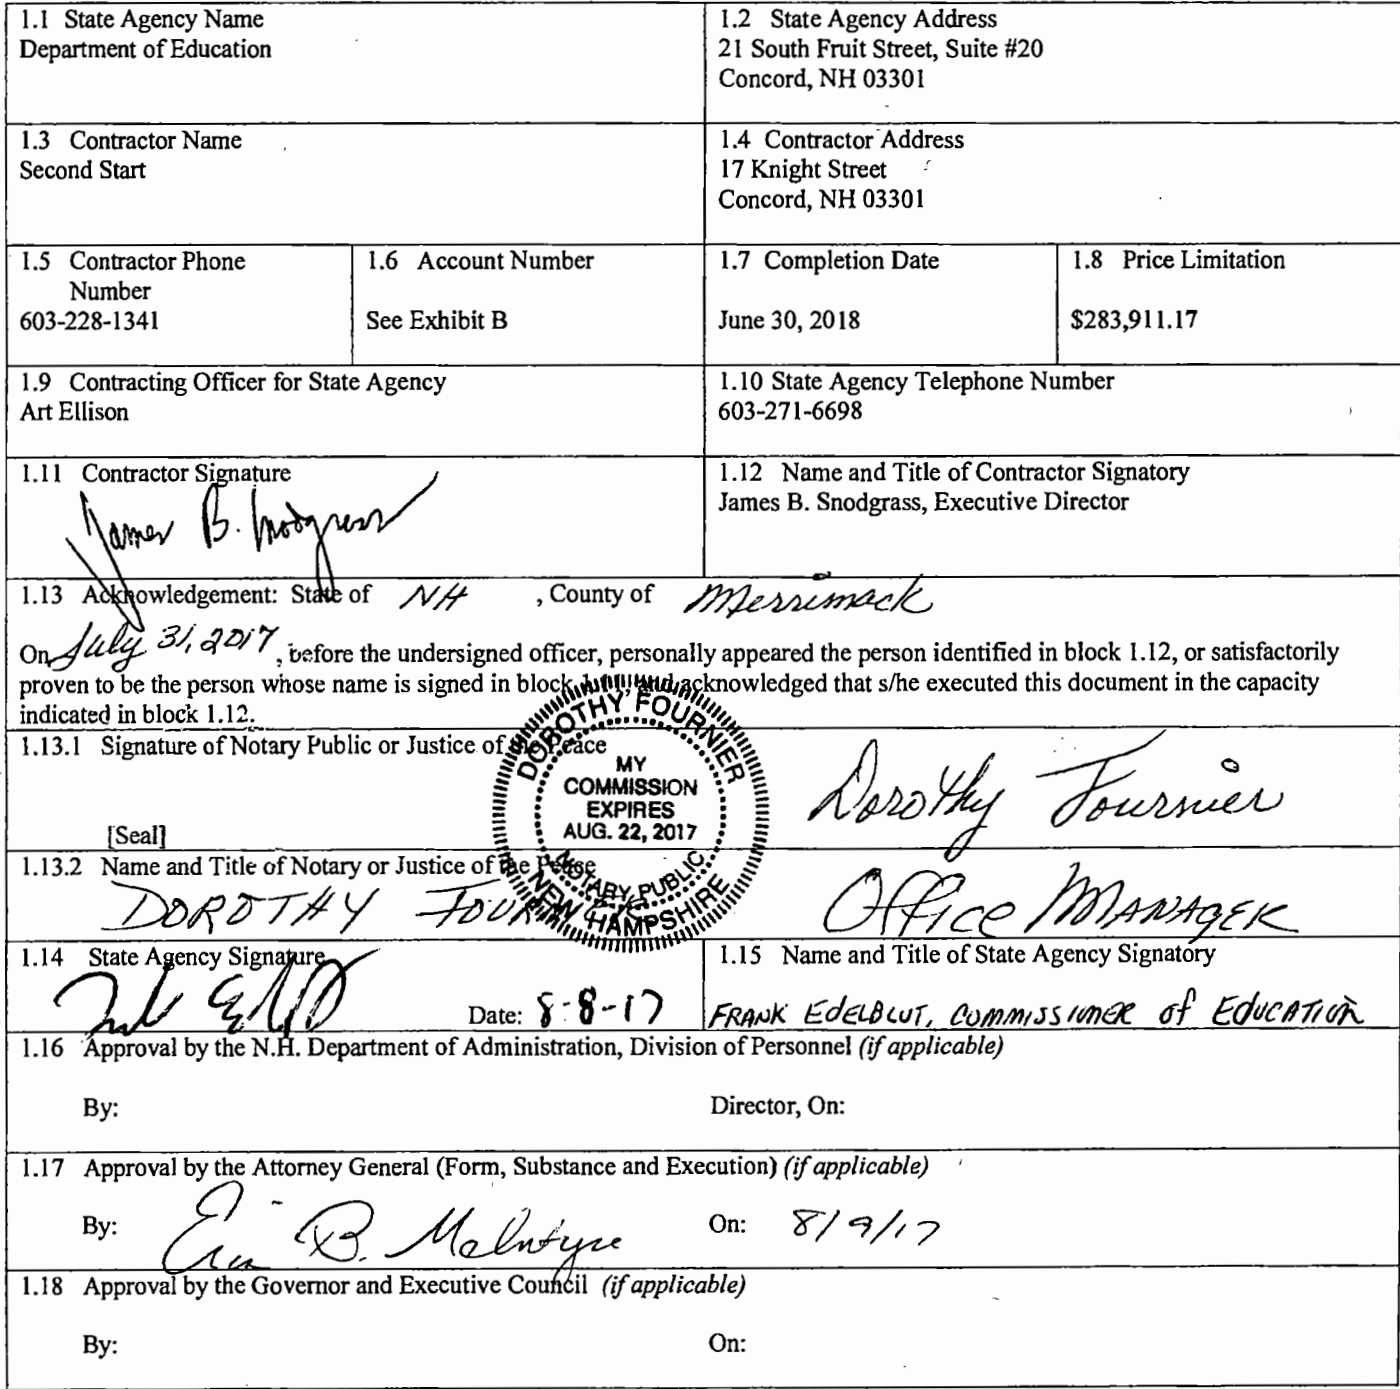 1.1 State Agency Name
Department of Education
1.2 State Agency Address
21 South Fruit Street, Suite #20
Concord, NH 03301
1.3 Contractor Name
Second Start
1.4 Contractor Address
17 Knight Street
Concord, NH 03301
1.5 Contractor Phone
Number
603-228-1341
1.6 Account Number
See Exhibit B
1.7 Completion Date
June 30, 2018
1.8 Price Limitation
$283,911.17
1.9 Contracting Officer for State Agency
Art Ellison
1.10 State Agency Telephone Number
603-271-6698
1.11 Contractor Signature
James B. Snodgrass
1.12 Name and Title of Contractor Signatory
James B. Snodgrass, Executive Director
1.13 Acknowledgement: State of NH , County of Merrimack
On July 31, 2017 , before the undersigned officer, personally appeared the person identified in block 1.12, or satisfactorily
proven to be the person whose name is signed in block and acknowledged that s/he executed this document in the capacity
indicated in block 1.12.
1.13.1 Signature of Notary Public or Justice of the Peace
Dorothy Fournier
[Seal]
DOROTHY FOURNIER
MY
COMMISSION
EXPIRES
AUG. 22, 2017
NOTARY PUBLIC
NEW HAMPSHIRE
1.13.2 Name and Title of Notary or Justice of the Peace
DOROTHY FOURNIER Office MANAGER
1.14 State Agency Signature
Date: 8-8-17
1.15 Name and Title of State Agency Signatory
FRANK EDELBLUT, COMMISSIONER of EDUCATION
1.16 Approval by the N.H. Department of Administration, Division of Personnel (if applicable)
By: Director, On:
1.17 Approval by the Attorney General (Form, Substance and Execution) (if applicable)
By: B. McIntyre On: 8/9/17
1.18 Approval by the Governor and Executive Council (if applicable)
By: On: